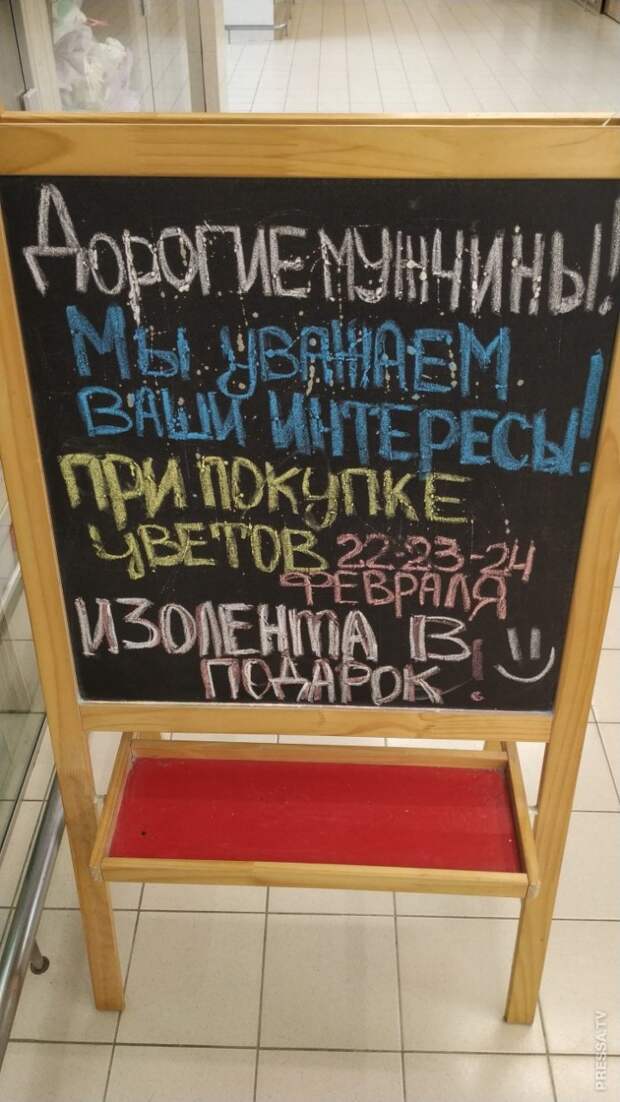 ДОРОГИЕ МУЖЧИНЫ!
МЫ УВАЖАЕМ
ВАШИ ИНТЕРЕСЫ!
ПРИ ПОКУПКЕ
ЦВЕТОВ 22-23-24
ФЕВРАЛЯ
ИЗОЛЕНТА В
ПОДАРОК!
PRESSA.TV